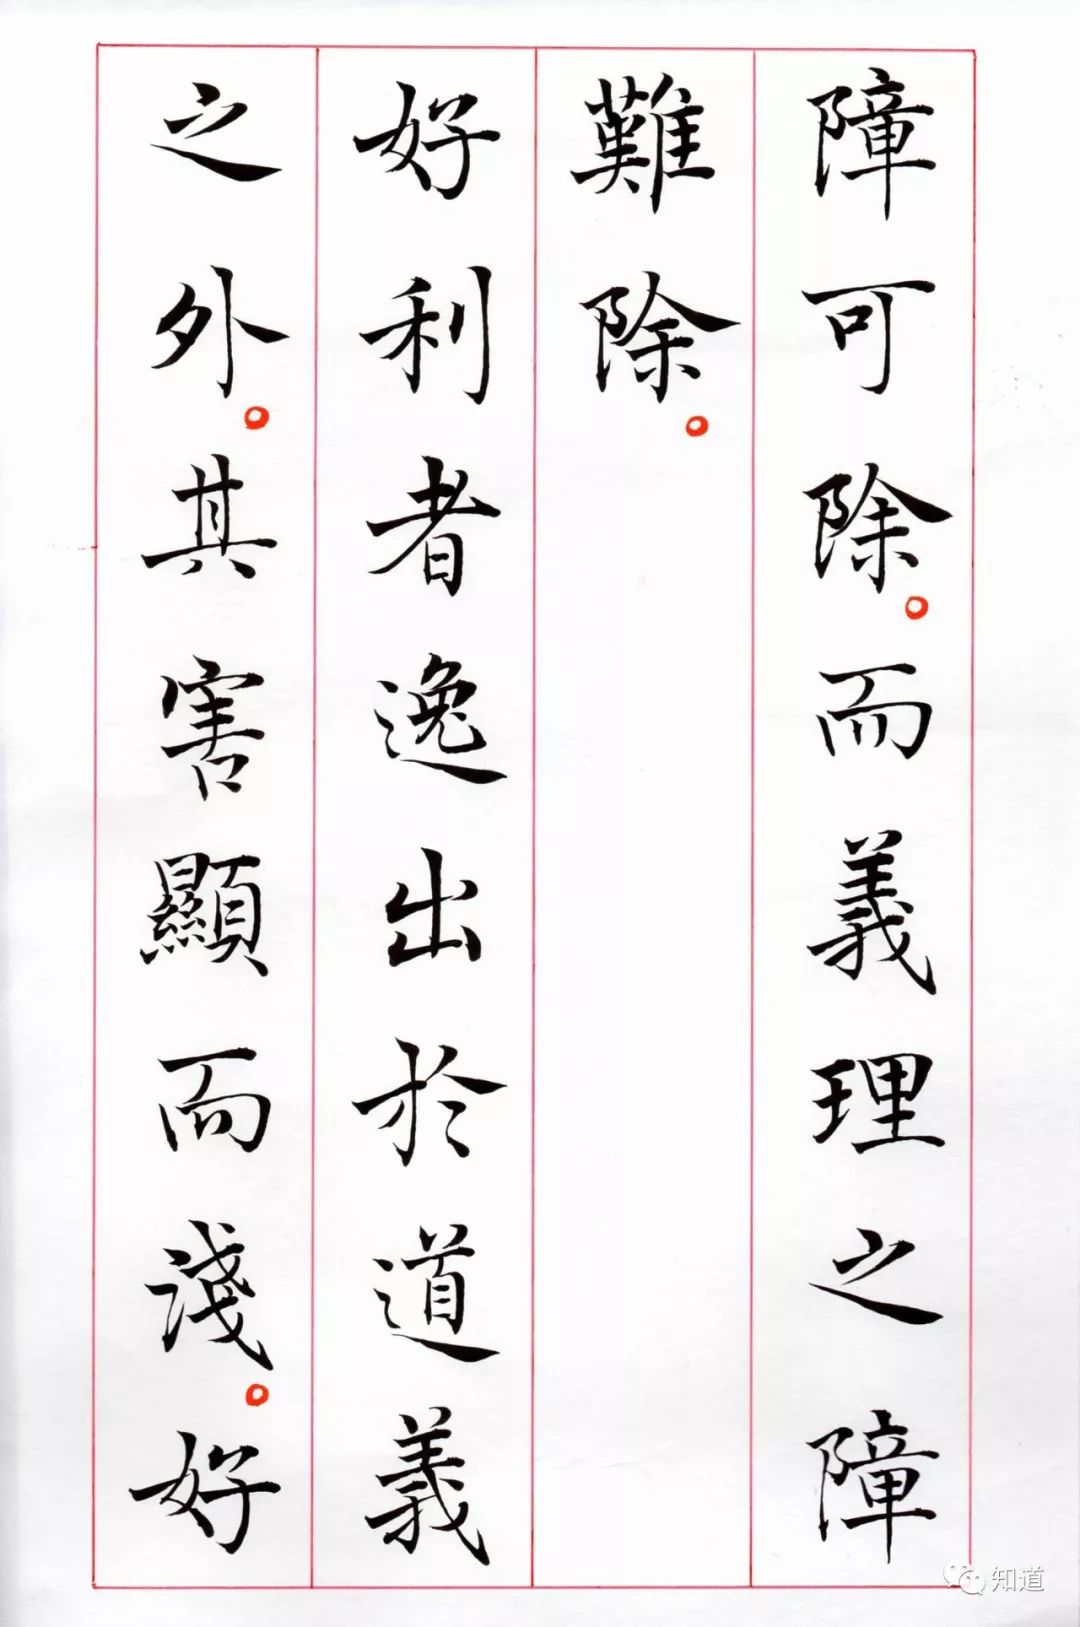 障可除。而義理之障
難除。
好利者逸出於道義
之外。其害顯而淺。好
知道